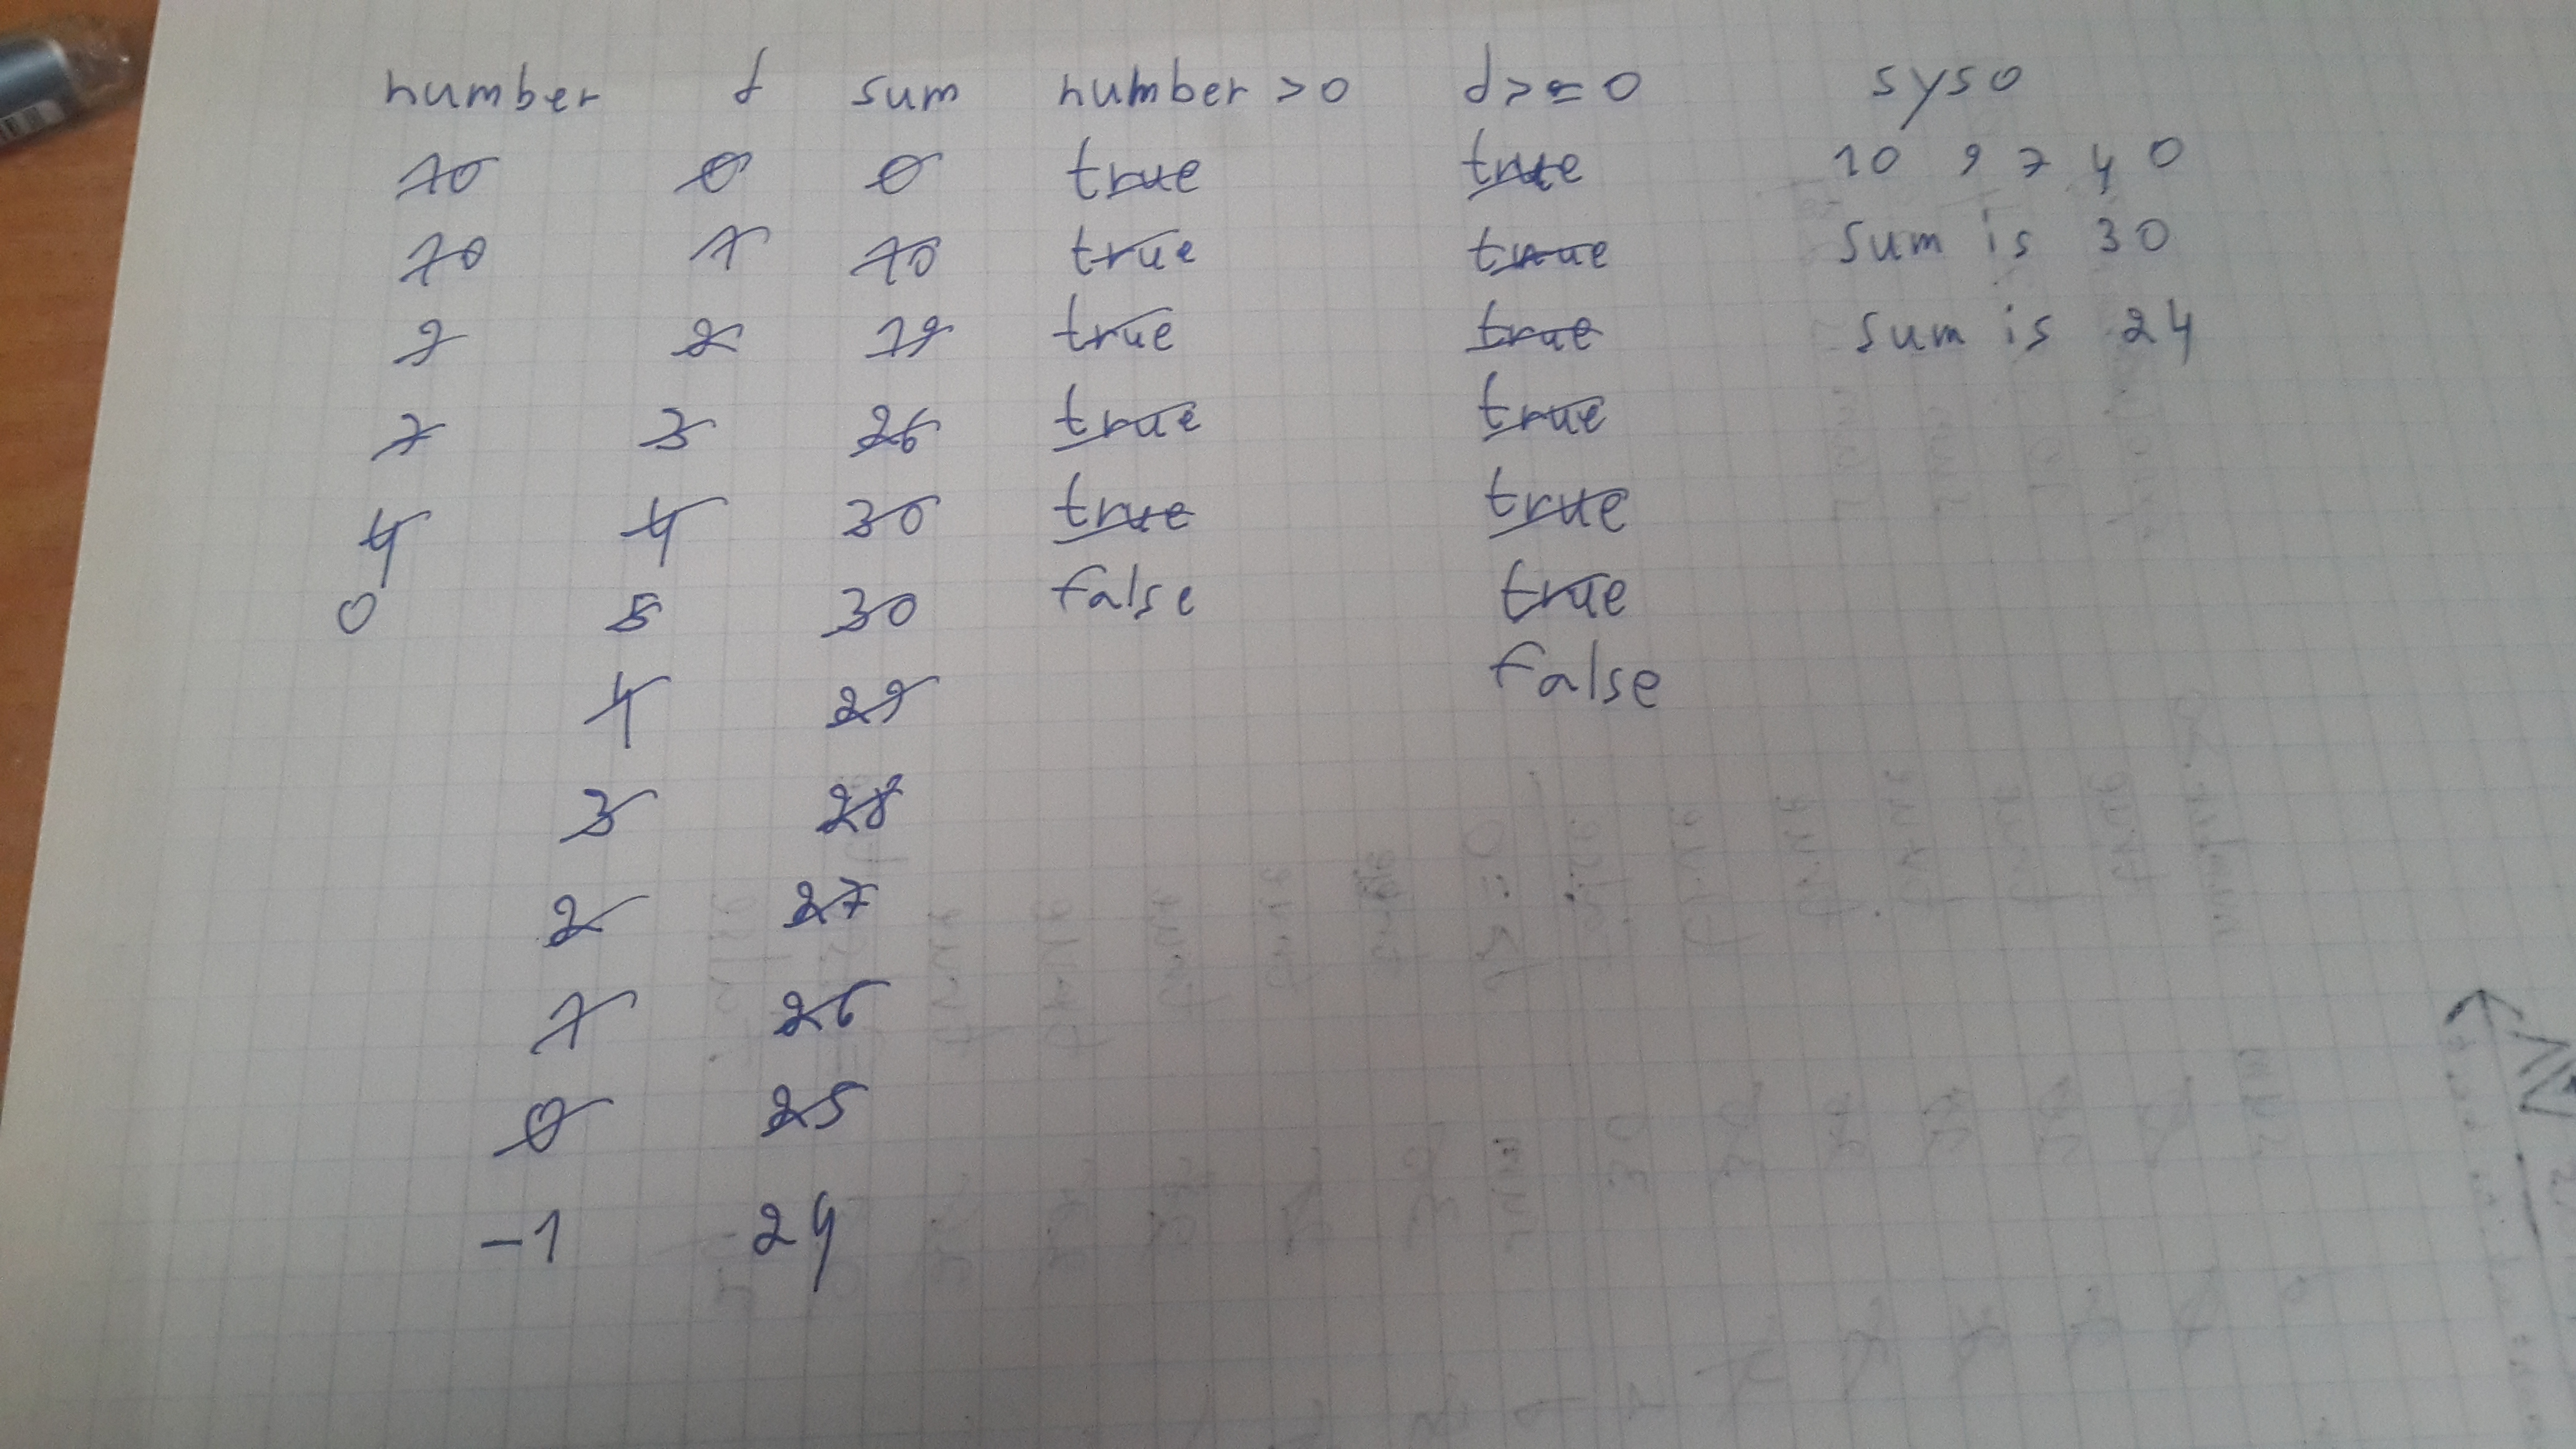 number d sum number >0 d>=0 syso
10 0 0 true true 10 9 7 4 0
10 1 10 true true Sum is 30
9 2 19 true true Sum is 24
7 3 26 true true
4 4 30 true true
0 5 30 false true
4 29 false
3 28
2 27
1 26
0 25
-1 24